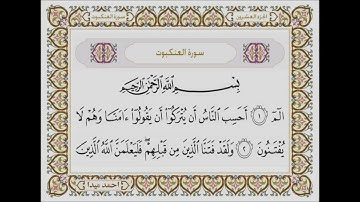 الجزء العشرين
سورة العنكبوت
سورة العنكبوت
بِسْمِ اللَّهِ الرَّحْمَٰنِ الرَّحِيمِ
الٓمٓ ١ أَحَسِبَ النَّاسُ أَن يُتْرَكُوٓا۟ أَن يَقُولُوٓا۟ ءَامَنَّا وَهُمْ لَا
يُفْتَنُونَ ٢ وَلَقَدْ فَتَنَّا الَّذِينَ مِن قَبْلِهِمْ ۖ فَلَيَعْلَمَنَّ اللَّهُ الَّذِينَ